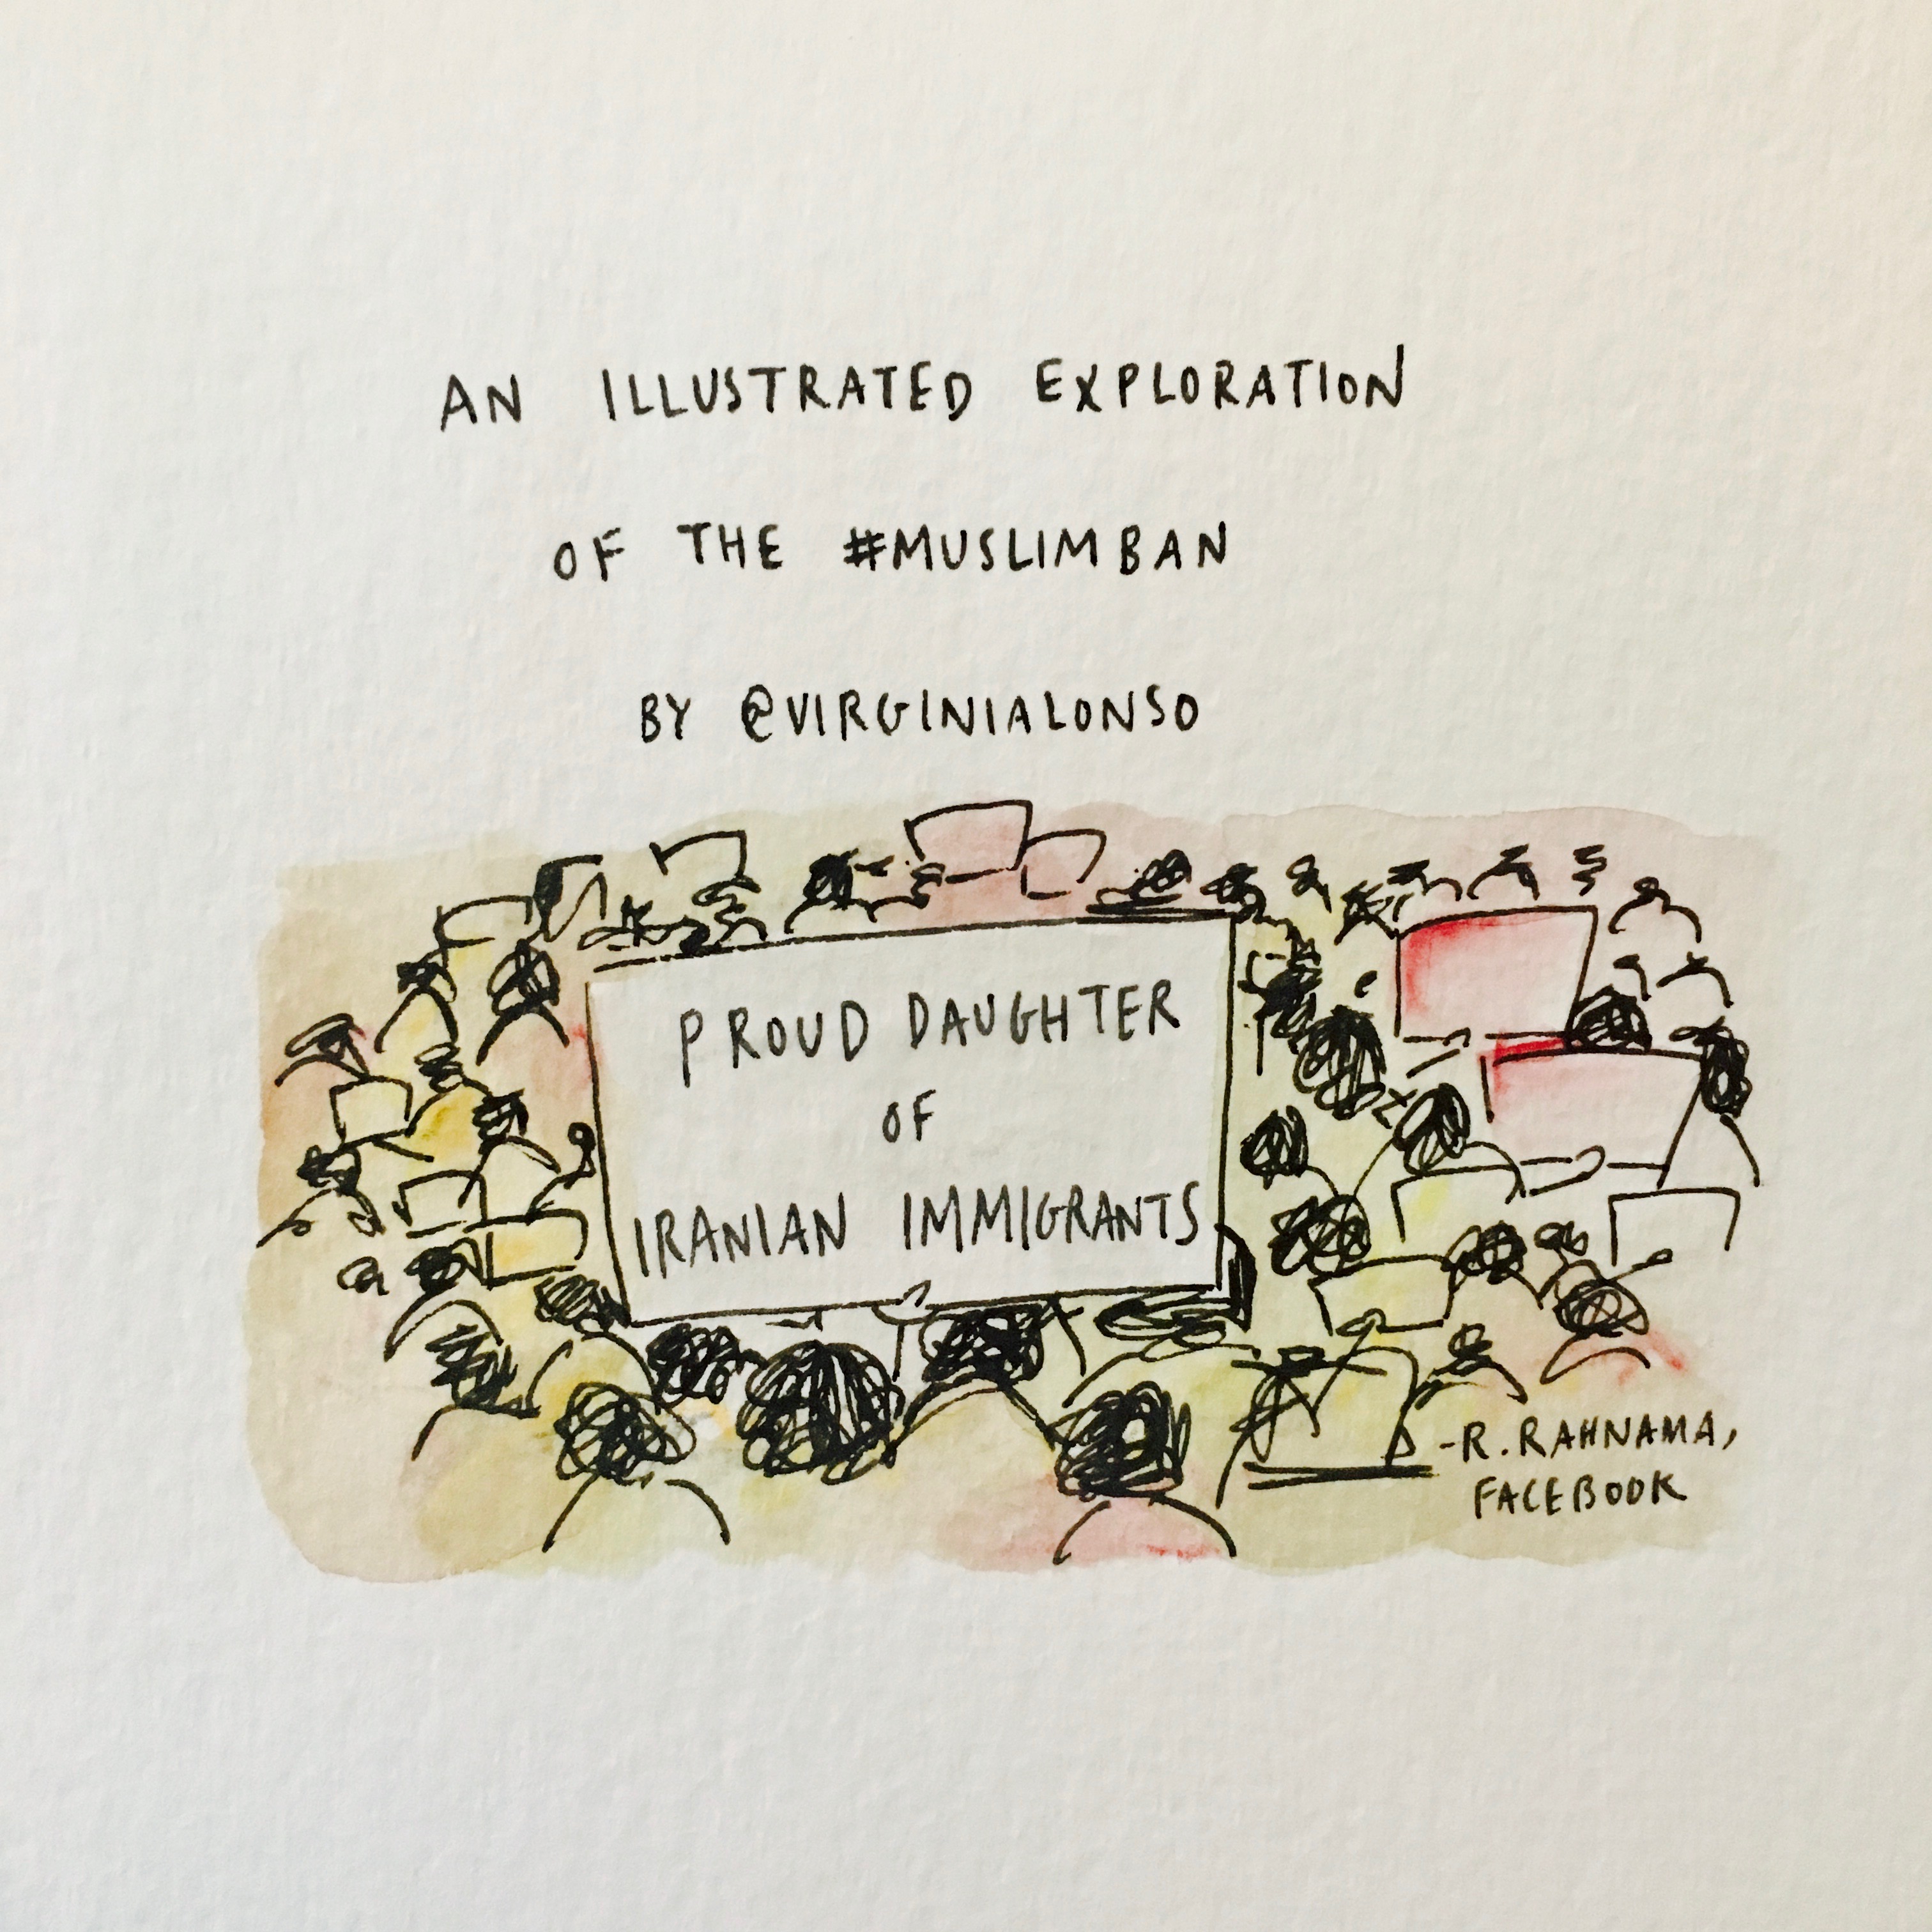 AN ILLUSTRATED EXPLORATION
OF THE #MUSLIMBAN
BY @VIRGINIALONSO
PROUD DAUGHTER
OF
IRANIAN IMMIGRANTS
-R. RAHNAMA,
FACEBOOK